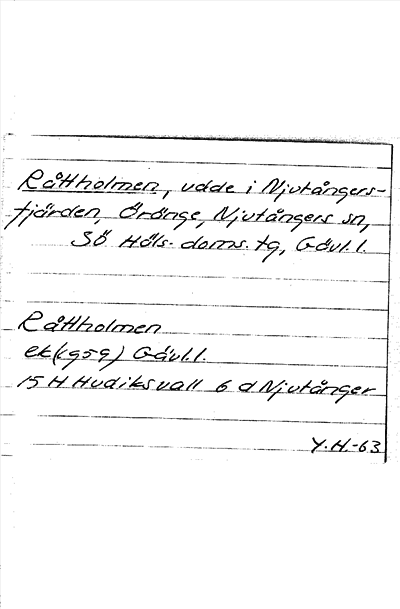 Råttholmen, udde i Njutångers-
fjärden, Öränge, Njutångers sn,
SÖ Häls. doms. tg, Gävl.l.
Råttholmen
ek (1959) Gävl.l.
15 H Hudiksvall 6 d Njutånger
Y.H.-63